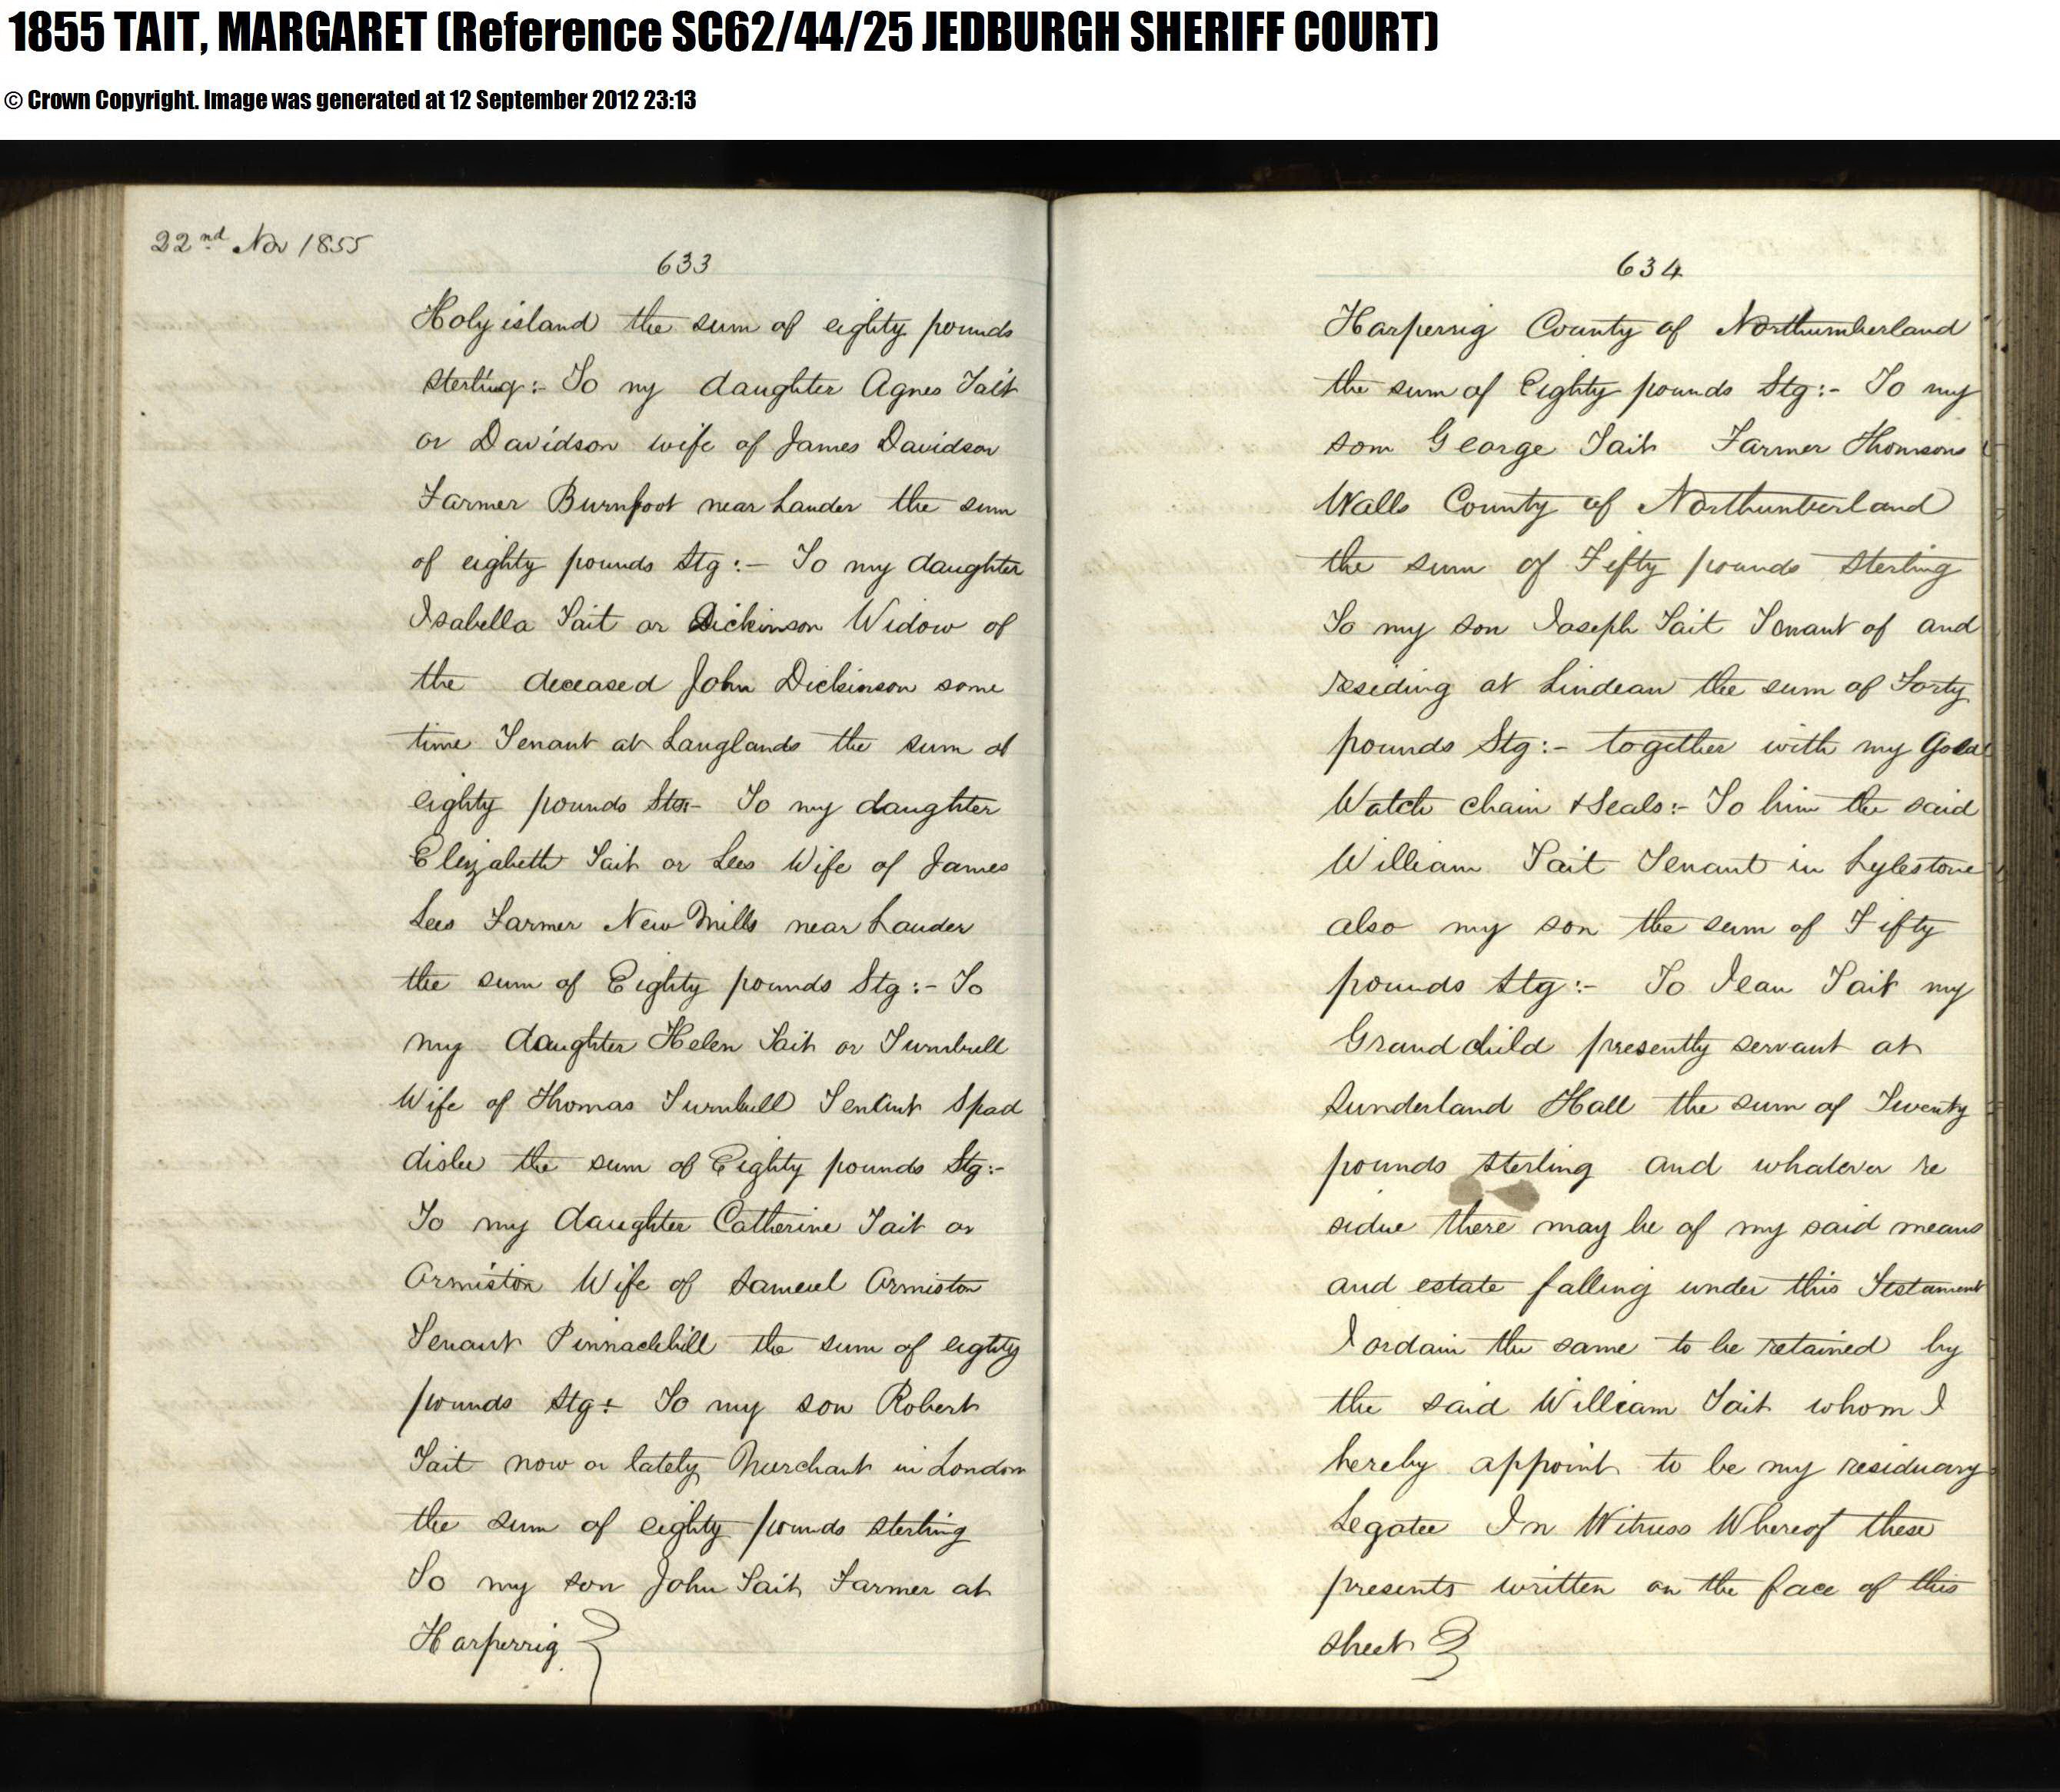 1855 TAIT, MARGARET (Reference SC62/44/25 JEDBURGH SHERIFF COURT)
© Crown Copyright. Image was generated at 12 September 2012 23:13
22nd Nov 1855
633
Holy island the sum of eighty pounds
sterling:- To my daughter Agnes Tait
or Davidson wife of James Davidson
Farmer Burnfoot near Lauder the sum
of eighty pounds Stg:- To my daughter
Isabella Tait or Dickinson Widow of
the deceased John Dickinson some
time Tenant at Langlands the sum of
eighty pounds Stg- To my daughter
Elizabeth Tait or Lees Wife of James
Lees Farmer New Mills near Lauder
the sum of Eighty pounds Stg:- To
my daughter Helen Tait or Turnbull
Wife of Thomas Turnbull Tenant Spad
dislee the sum of Eighty pounds Stg:-
To my daughter Catherine Tait or
Ormiston Wife of Samuel Ormiston
Tenant Pinnaclehill the sum of eighty
pounds Stg:- To my son Robert
Tait now or lately Merchant in London
the sum of eighty pounds sterling
To my son John Tait Farmer at
Harperrig
634
Harperrig County of Northumberland
the sum of Eighty pounds Stg:- To my
son George Tait Farmer Thomsons
Walls County of Northumberland
the sum of Fifty pounds sterling
To my son Joseph Tait Tenant of and
residing at Lindean the sum of Forty
pounds Stg:- together with my Gold
Watch chain & Seals:- To him the said
William Tait Tenant in Lylestone
also my son the sum of Fifty
pounds Stg:- To Jean Tait my
Grandchild presently servant at
Sunderland Hall the sum of Twenty
pounds sterling and whatever re
sidue there may be of my said means
and estate falling under this Testament
I ordain the same to be retained by
the said William Tait whom I
hereby appoint to be my residuary
Legatee In Witness Whereof these
presents written on the face of this
sheet